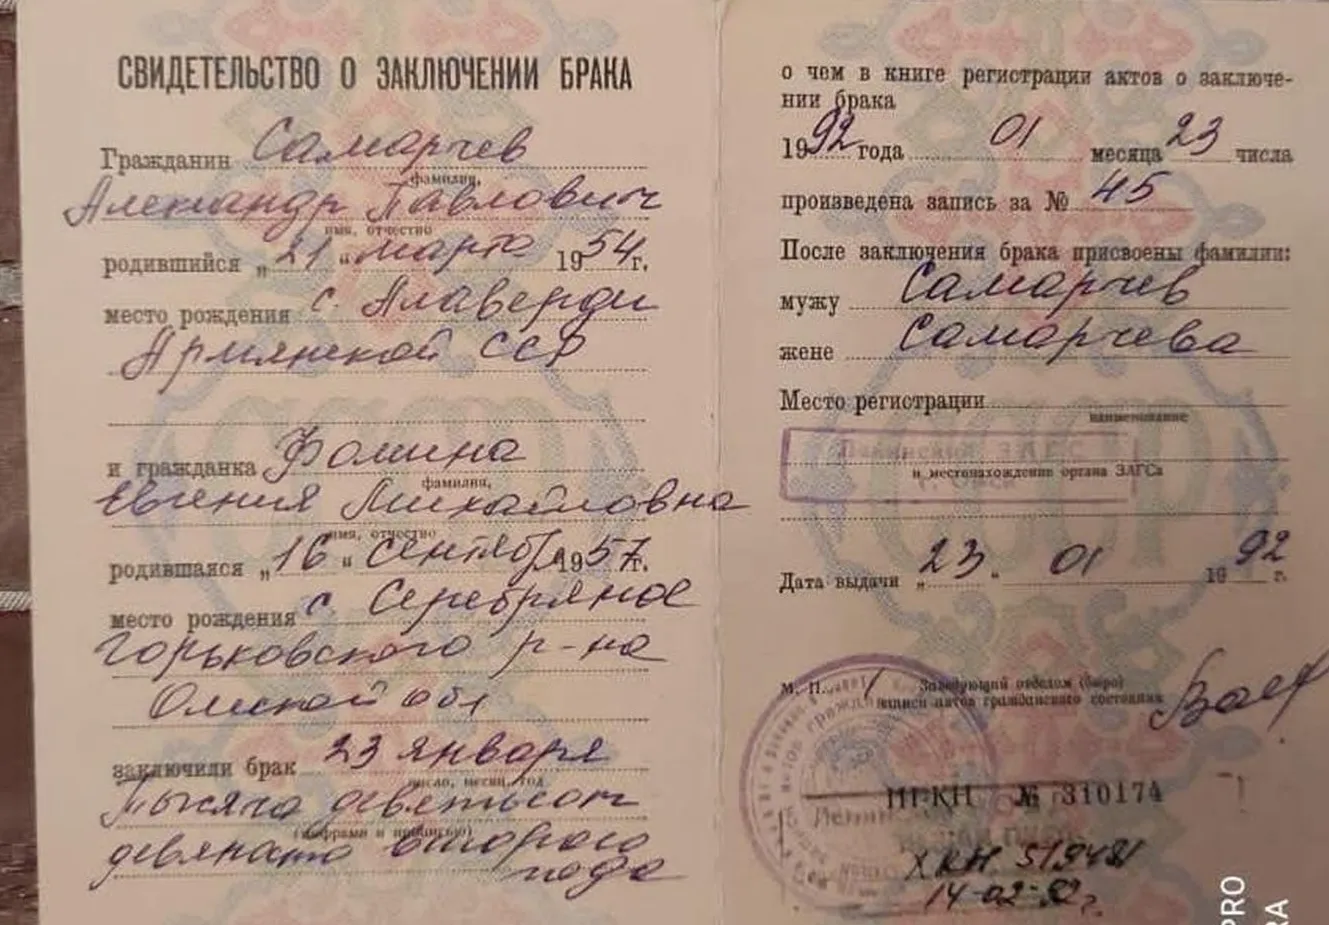 СВИДЕТЕЛЬСТВО О ЗАКЛЮЧЕНИИ БРАКА
Гражданин Самарчев
фамилия,
Александр Павлович
имя, отчество
родившийся „21“ марта 1954 г.
место рождения с. Алаверди
Армянской ССР
и гражданка Фомина
фамилия,
Евгения Михайловна
имя, отчество
родившаяся „16“ сентября 1957 г.
место рождения с. Серебряное
Горьковского р-на
Омской обл
заключили брак 23 января
число, месяц, год
тысяча девятьсот
(цифрами и прописью)
девяносто второго
года
о чем в книге регистрации актов о заключе-
нии брака
1992 года 01 месяца 23 числа
произведена запись за № 45
После заключения брака присвоены фамилии:
мужу Самарчев
жене Самарчева
Место регистрации
наименование
ЗАГС
и местонахождение органа ЗАГСа
Дата выдачи „23“ 01 1992 г.
М. П. Заведующий отделом (бюро)
записи актов гражданского состояния
№ 310174
14-02-92г
PRO
RA